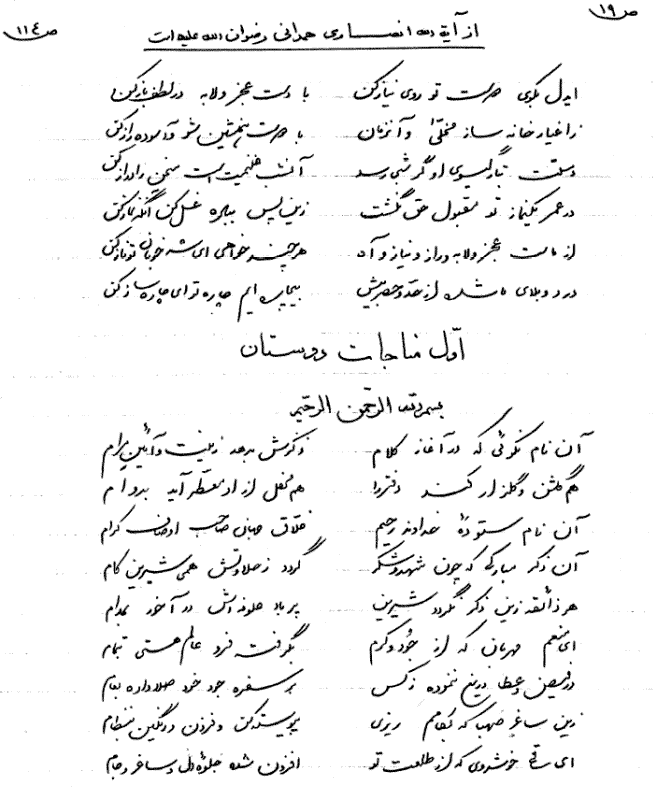 ص ۱۹
ص ۱۱٤
از آیة الله انصاری همدانی رضوان الله علیه است
ایدل بکوی حضرت تو روی نیاز کن با دست عجز و لابه در لطف باز کن
ز اغیار خانه ساز مخلّیٰ و آنزمان با حضرتت همنشین شو و آسوده راز کن
دستت بتار گیسوی او گر شبی رسد آنشب غنیمت است سخن را دراز کن
در عمر یکنماز تو مقبول حق نگشت زین پس بیا و غسل کن آنگه نماز کن
از ماست عجز و لابه و راز و نیاز و آه هر چند خواهی ای شه خوبان تو ناز کن
درد و بلای ما شده از حد و حصر بیش بیچاره ایم چاره تو ای چاره ساز کن
اوّل مناجات دوستان
بسم الله الرحمن الرحیم
آن نام نکوئی که در آغاز کلام ذکرش بدهد زینت و آئین مرام
هم گلشن و گلزار کند دفتر را هم محفل از او معطر آید بدوام
آن نام ستودهٔ خداوند رحیم خلاق جهان صاحب اوصاف کرام
آن ذکر مبارکی که چون شهد و شکر گردد ز حلاوتش همی شیرین کام
هر ذائقه زین ذکر نگردد شیرین پر باد در آخور بمدام
ای منعم مهربان که از جُود و کرم بگرفت فرو عالم هستی تمام
در فیض و عطا دریغ ننموده ز کس بر سفره جود خود صلا داده بعام
زین ساغر صهبا که بکامم ریزی پیوسته کن و فزون و رنگین
ای ساقی خوشروی که از طلعت تو افزون شده جلوهٔ دل و ساغر و جام